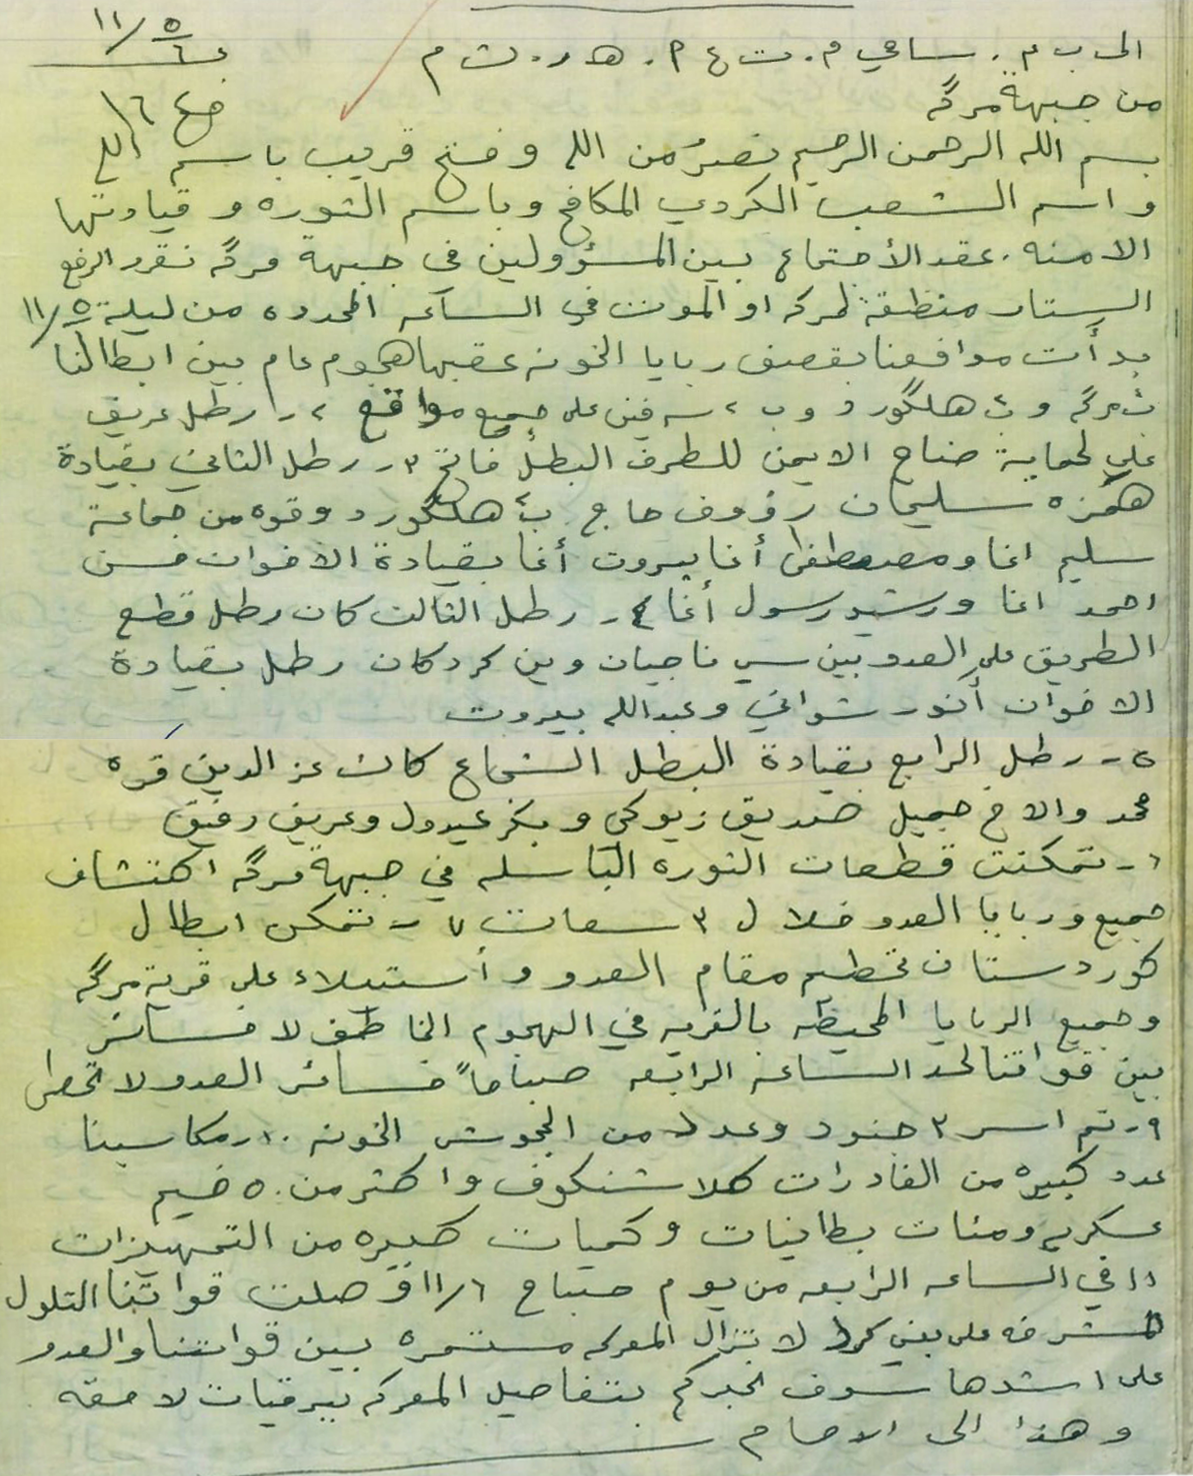 ١١/٥
٦
الى ب م . سامي م. ت ع م. ه ر. ث م
من جبهة مرگه
بسم الله الرحمن الرحيم نصرٌ من الله وفتح قريب باسم الله
واسم الشعب الكردي المكافح وباسم الثوره و قيادتها
الامنه . عقد الأجتماع بين المسؤولين في جبهة مرگه نقرر الرفع
الستار منطقة لمركه او الموت في الساعه المحدده من ليلة ١١/٥
بدأت موافعنا بقصف ربايا الخونه عقبها هجوم عام بين ابطالنا
ث مرگه و ث هلگورد و ب ٢ سه فين على جميع مواقع ٢ ر رطل عريف
علي لحماية جناح الايمن للطرف البطل فاتح ٣-ر رطل الثاني بقيادة
همزه سليمان رؤوف حاج ب ٢ هلگورد وقوه من جماعة
سليم اغا ومصطفى أغا بيروت أغا بقيادة الاخوان حسن
احمد اغا ورشيد رسول أغا ٤- رطل الثالث كان رطل قطع
الطريق على العدو بين سي ناجيان وبن كردكان رطل بقيادة
الاخوان أنور شواني وعبدالله بيروت
٥-ر رطل الرابع بقيادة البطل الشجاع كان عز الدين قره
محمد والاخ جميل صديق زيوكي وبكر عبدول وعريف رفيق
٦- تمكنت قطعات الثوره الباسله في جبهة مرگه اكتشاف
جميع و ربايا العدو خلال ٣ سعات ٧ - تمكن ابطال
كوردستان تحطيم مقام العدو و أستيلاء على قرية مرگه
وجميع الربايا المحيطه بالقريه في الهجوم الخاطف لا خسائر
بين قواتنا لحد الساعه الرابعه صباحاً خسائر العدو لا تحطى
٩-رتم اسر ٣ جنود وعدد من الجحوش الخونه ١٠-ر مكاسبنا
عدد كبيره من الغادرات كلاشنكوف واكثر من ٥٠ خيم
عسكريه ومئات بطانيات وكميات كبيره من التجهيزات
١١ في الساعه الرابعه من يوم صباح ١١/٦ وصلت قواتنا التلول
المشرفه على بني كرد لا تزال المعركه مستمره بين قواتنا والعدو
على اشدها سوف نخبركم بتفاصيل المعركه ببرقيات لاحقه
وهذا الى الامام